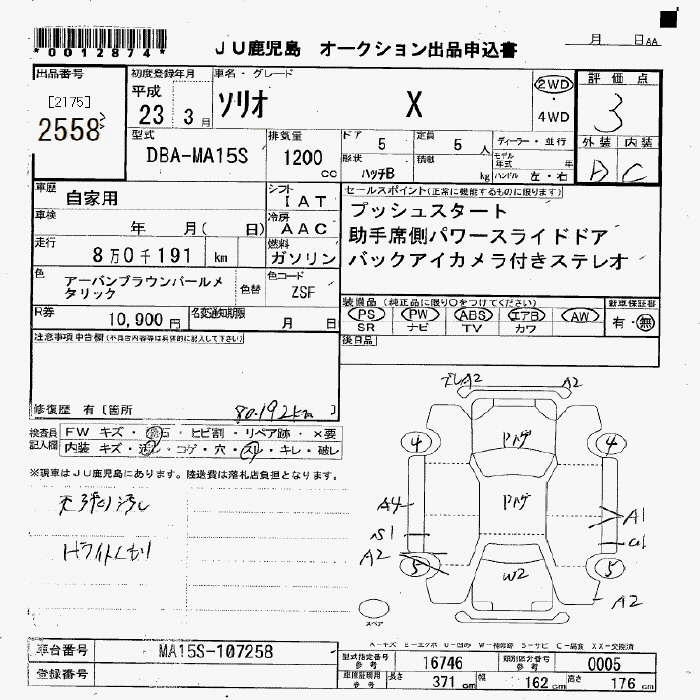 *0012874*
JU鹿児島 オークション出品申込書
月 日AA
出品番号
[2175]
2558
初度登録年月
平成
23 3月
車名・グレード
ソリオ X
2WD
・
4WD
評価点
3
外装 内装
D C
型式
DBA-MA15S
排気量
1200
cc
ドア
5
形状
ハッチB
定員
5 人
積載
kg
ディーラー・並行
モデル
年式 年
ハンドル 左・右
車歴
自家用
シフト
IAT
車検
年 月( 日)
冷房
AAC
走行
8万0千191 km
燃料
ガソリン
色
アーバンブラウンパールメ
タリック
色替
色コード
ZSF
R券
10,900 円
名変通知期限
月 日
セールスポイント(正常に機能するものに限ります)
プッシュスタート
助手席側パワースライドドア
バックアイカメラ付きステレオ
装備品(純正品に限り○をつけてください)
PS PW ABS エアB AW
SR ナビ TV カワ
新車保証書
有・無
後日品
注意事項申告欄(不具合内容等は具体的に記入して下さい)
修復歴 有〔箇所 〕
80.192km
検査員
記入欄
FW キズ・ ・ヒビ割・リペア跡・×要
内装 キズ・ ・コゲ・穴・スレ・キレ・破レ
※現車はJU鹿児島にあります。陸送費は落札店負担となります。
A2
A2
4
4
A4
S1
A2
5
A1
5
W2
A2
スペア
A-キズ E-エクボ U-凹み W-補修跡 S-サビ C-腐食 XX-交換済
車台番号
MA15S-107258
登録番号
型式指定番号
参考
16746
類別区分番号
参考
0005
車検証積用
参考
長さ
371 cm
幅
162 cm
高さ
176 cm